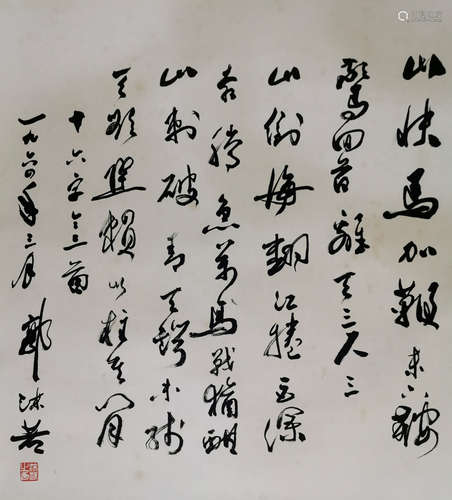 山快馬加鞭未下鞍
驚回首離天三尺三
山倒海翻江捲巨瀾
奔騰急萬馬戰猶酣
山刺破青天鍔未殘
天欲墮賴以柱其間
十六字令三首
一九六四年三月 郭沫若